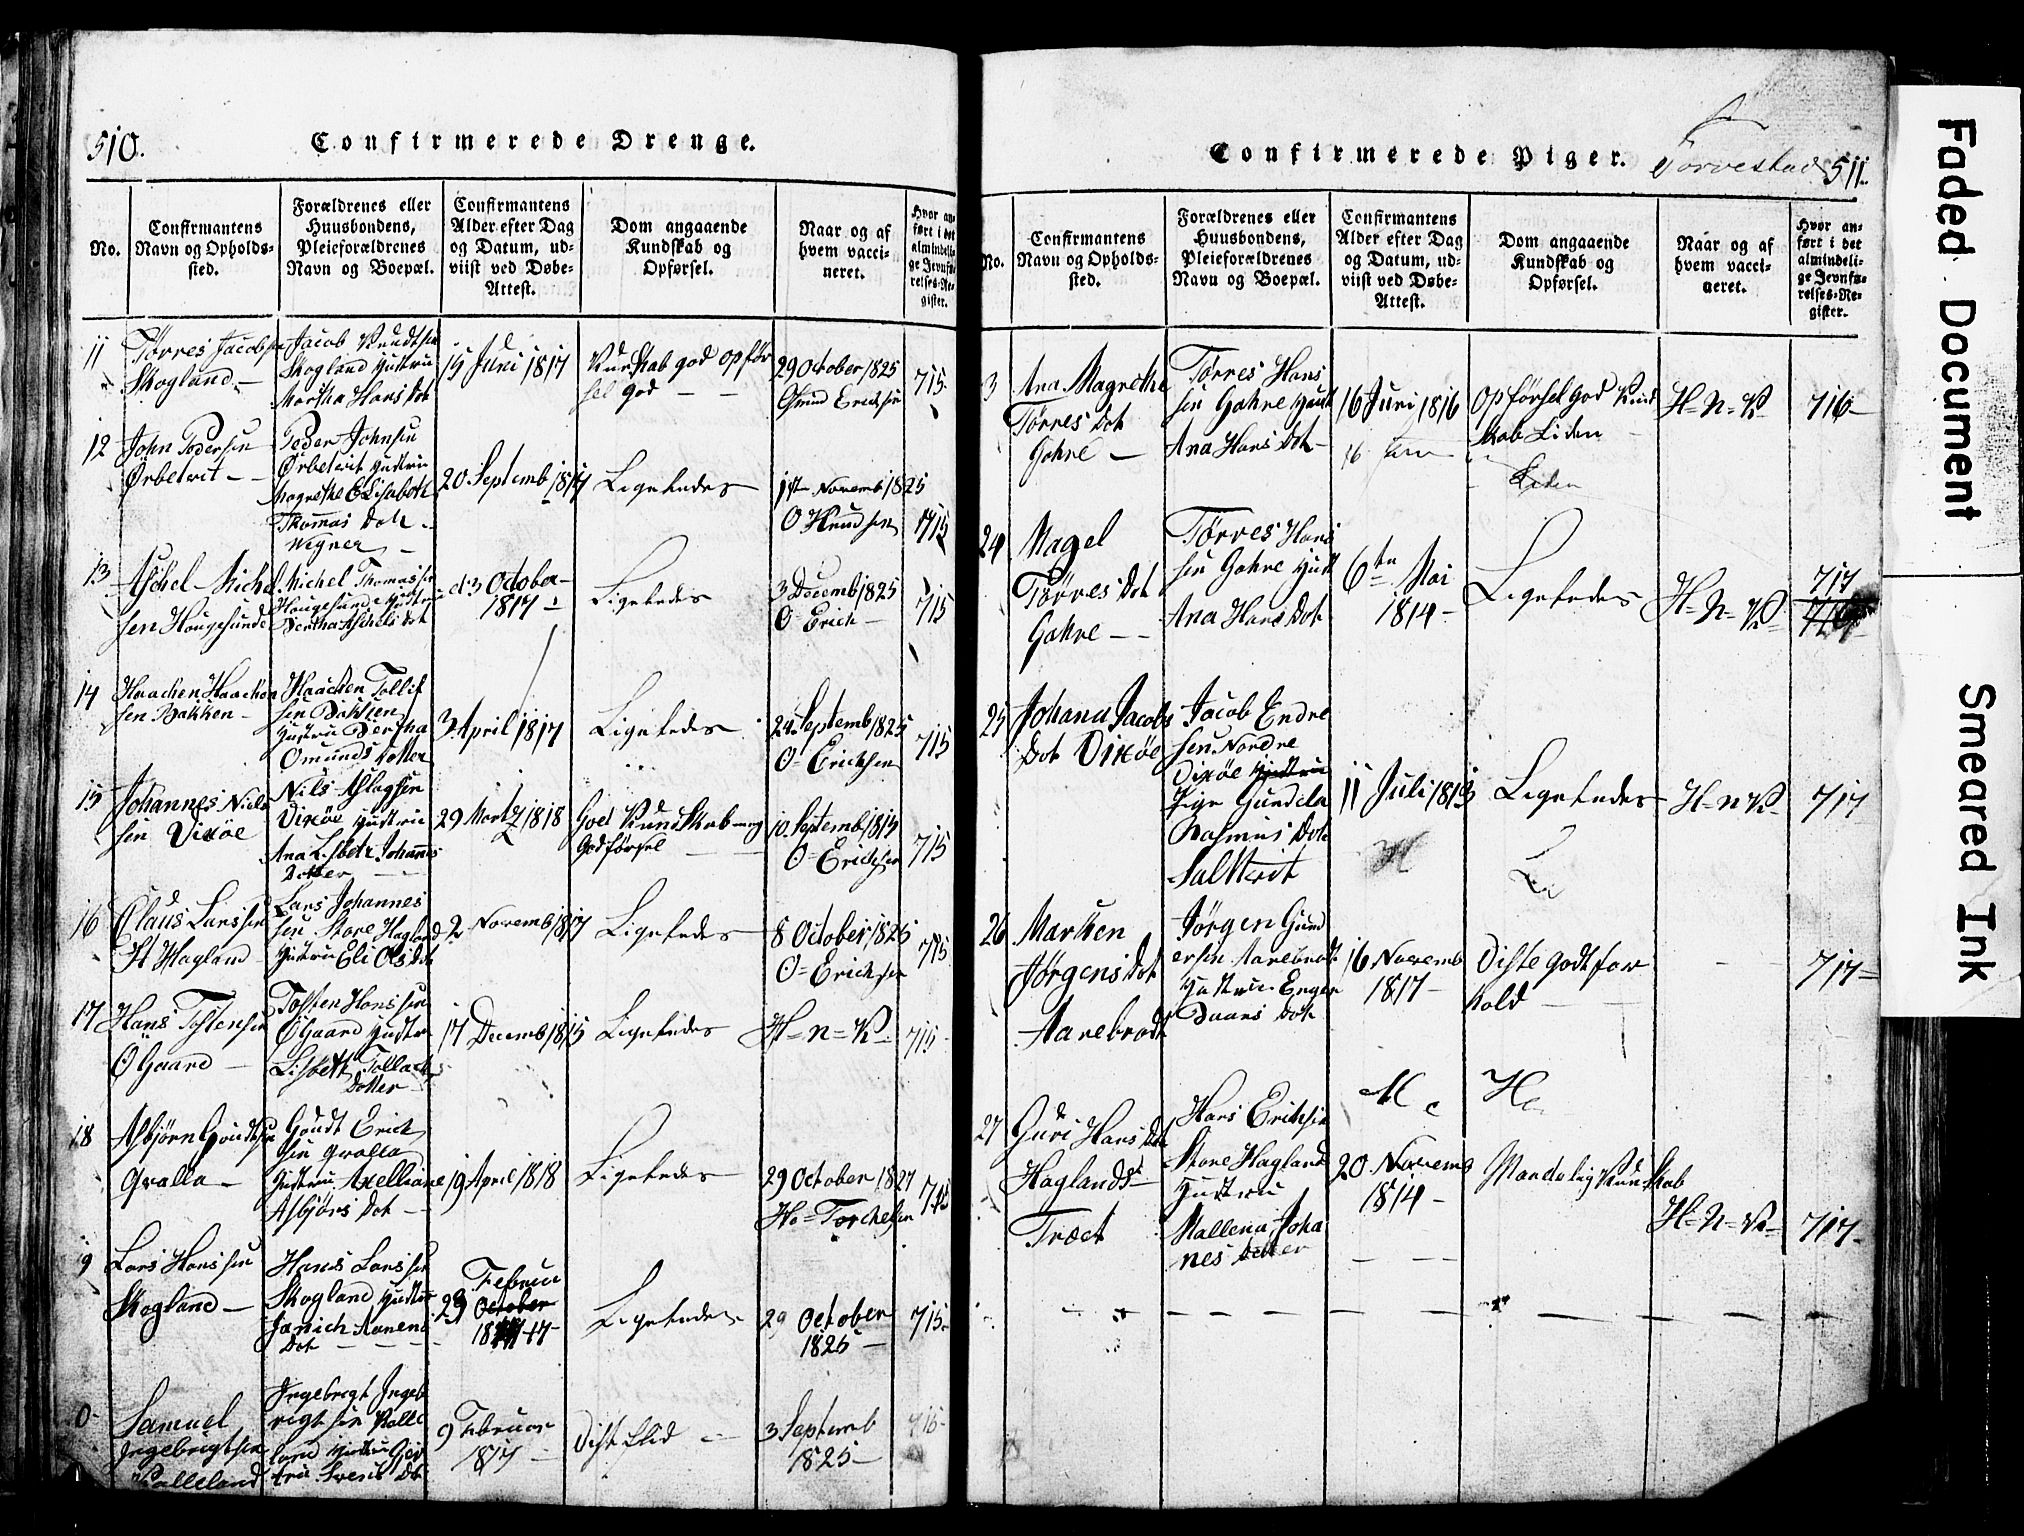 510.
Confirmerede Drenge.
No.
Confirmantens
Navn og Opholds-
sted.
Forældrenes eller
Huusbondens,
Pleieforældrenes
Navn og Boepæl.
Confirmantens
Alder efter Dag
og Datum, ud-
viist ved Døbe-
Attest.
Dom angaaende
Kundskab og
Opførsel.
Naar og af
hvem vacci-
neret.
Hvor an-
ført i det
almindeli-
ge Jevnfø-
relses-Re-
gister.
11
Tørres Jacobsen
Skogland
Jacob Knudtsen
Skogland Hustru
Martha Hans Dot
15 Juni 1817
Kundskab god opfør
sel god
29 October 1825
Omund Erichsen
715
12
John Pedersen
Ørbetvit
Peder Johnsen
Ørbetvit Hustru
Magrethe Elisabeth
Thomas Dotr
Wegner
20 Septemb 1817
Ligeledes
1ste Novemb 1825
O Knudsen
715
13
Aschel Michel
sen Hougesunde
Michel Thomassen
Hougesunde Hustru
Bertha Aschels Dot
d 3 October
1817
Ligeledes
3 Decemb 1825
O Erich
715
14
Haachen Haachen
sen Bakken
Haachen Tollif
sen Bakken
Hustru Bertha
Omunds Dotter
3 April 1817
Ligeledes
24 Septemb 1825
O= Erichsen
715
15
Johannes Niels
sen Vixøe
Nils Aslagsen
Vixøe Hustru
Ana Lisbeth Johannes
Dotter
29 Martz 1818
God Kundskab og
God førsel
10 Septemb 1815
O= Erichsen
715
16
Claus Larssen
St Hagland
Lars Johannes
sen Store Hagland
Hustru Eli Ols Dot
2 Novemb 1817
Ligeledes
8 October 1825
O= Erichsen
715
17
Hans Tostensen
Ø Gaard
Tosten Hanssen
Ø Gaard Hustru
Lisbeth Tollach
Dotter
17 Decemb 1815
Ligeledes
H=n=V
715
18
Asbjørn Goudtsen
Qvalla
Goudt Erich
sen Qvalla
Hustru Axelliane
Asbjørs Dot
19 April 1818
Ligeledes
29 October 1827
Ho= Torchelsen
715
9
Lars Hanssen
Skogland
Hans Larssen
Skogland Hustru
Janich Aanens
Dot
Februar
29 October
1817
Ligeledes
29 October
1825
715
0
Samuel
Ingebrigtsen
Kalleland
Ingebrigt Ingeb
rigtsen Kalle
land Hustru
Svens Dot
9 Februar
1817
Dist flid
3 Septemb
1825
715
Confirmerede Piger.
Torvestad
511.
No.
Confirmantens
Navn og Opholds-
sted.
Forældrenes eller
Huusbondens,
Pleieforældrenes
Navn og Boepæl.
Confirmantens
Alder efter Dag
og Datum, ud-
viist ved Døbe-
Attest.
Dom angaaende
Kundskab og
Opførsel.
Naar og af
hvem vacci-
neret.
Hvor an-
ført i det
almindeli-
ge Jevnfø-
relses-Re-
gister.
3
Ana Magrethe
Tørres Dot
Gahre
Tørres Hans
sen Gahre Hust
Ana Hans Dot
16 Juni 1816
Opførsel god Kund
skab Liden
H=n=V
716
24
Magel
Tørres Dot
Gahre
Tørres Hans
sen Gahre Hust
Ana Hans Dot
6te Mai
1814
Ligeledes
H=n=V
717
25
Johana Jacobs
Dot Vixøe
Jacob Endre
sen Nordre
Vixøe Hustru
Pige Gundela
Rasmus Dot
Saltveit
11 Juli 1813
Ligeledes
H=n V
717
26
Marken
Jørgens Dot
Aarebrodt
Jørgen Gund
ersen Aarebrodt
Hustru Enger
Baars Dot
16 Novemb
1817
Diste godt for
hold
717
27
Guri Hans Dot
Haglands
Træet
Hans Erichsen
Store Hagland
Hustru
Mallena Joha
nes Dotter
20 Novemb
1814
Maadelig Kundskab
H=n=V
717
Faded Document
Smeared Ink